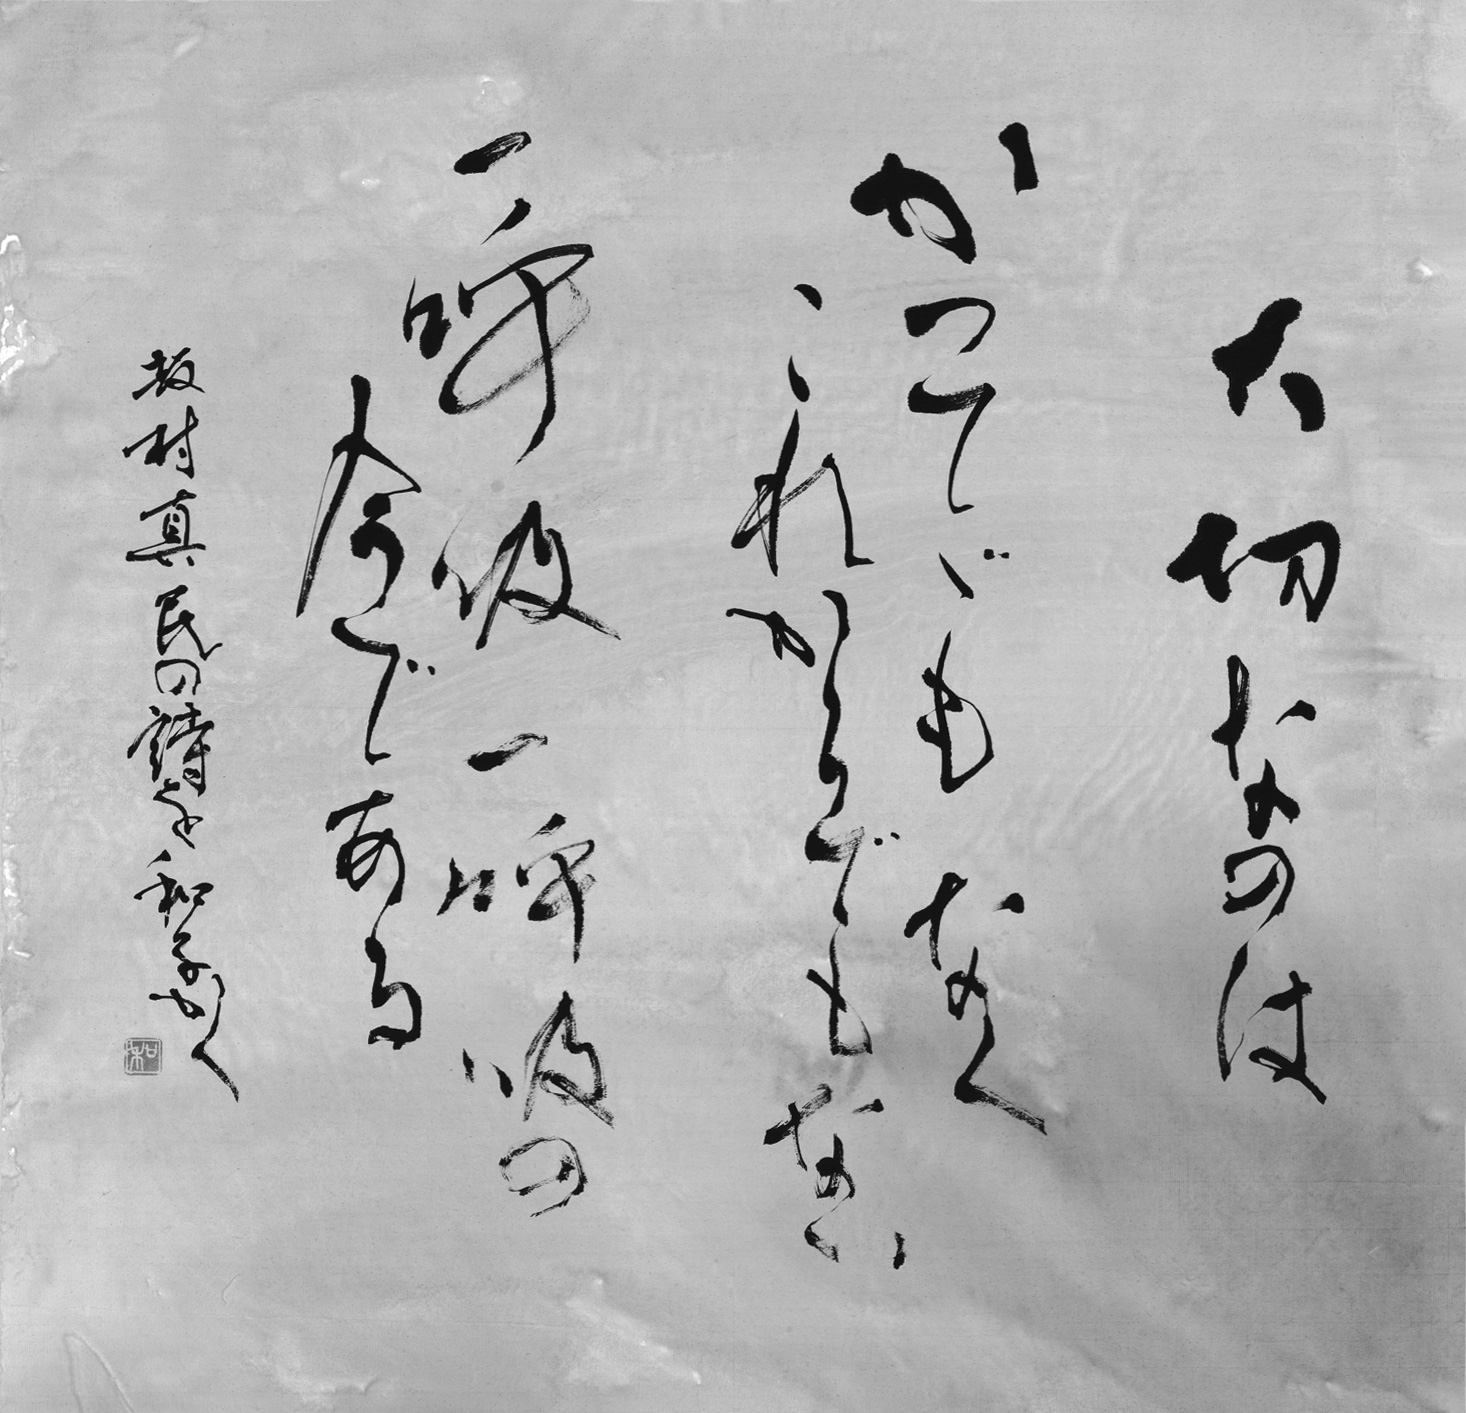 大切なのは
かつてでもなく
これからでもない
一呼吸一呼吸の
今である
坂村真民の詩を 和子かく
和